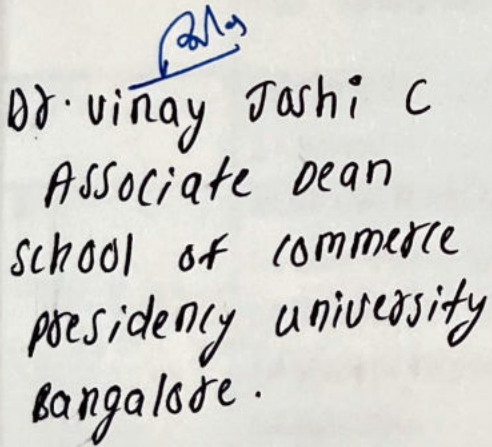 Dr. Vinay Joshi C
Associate Dean
School of Commerce
Presidency University
Bangalore.